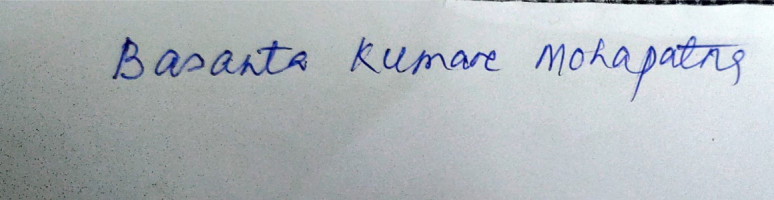 Basanta Kumar Mohapatra